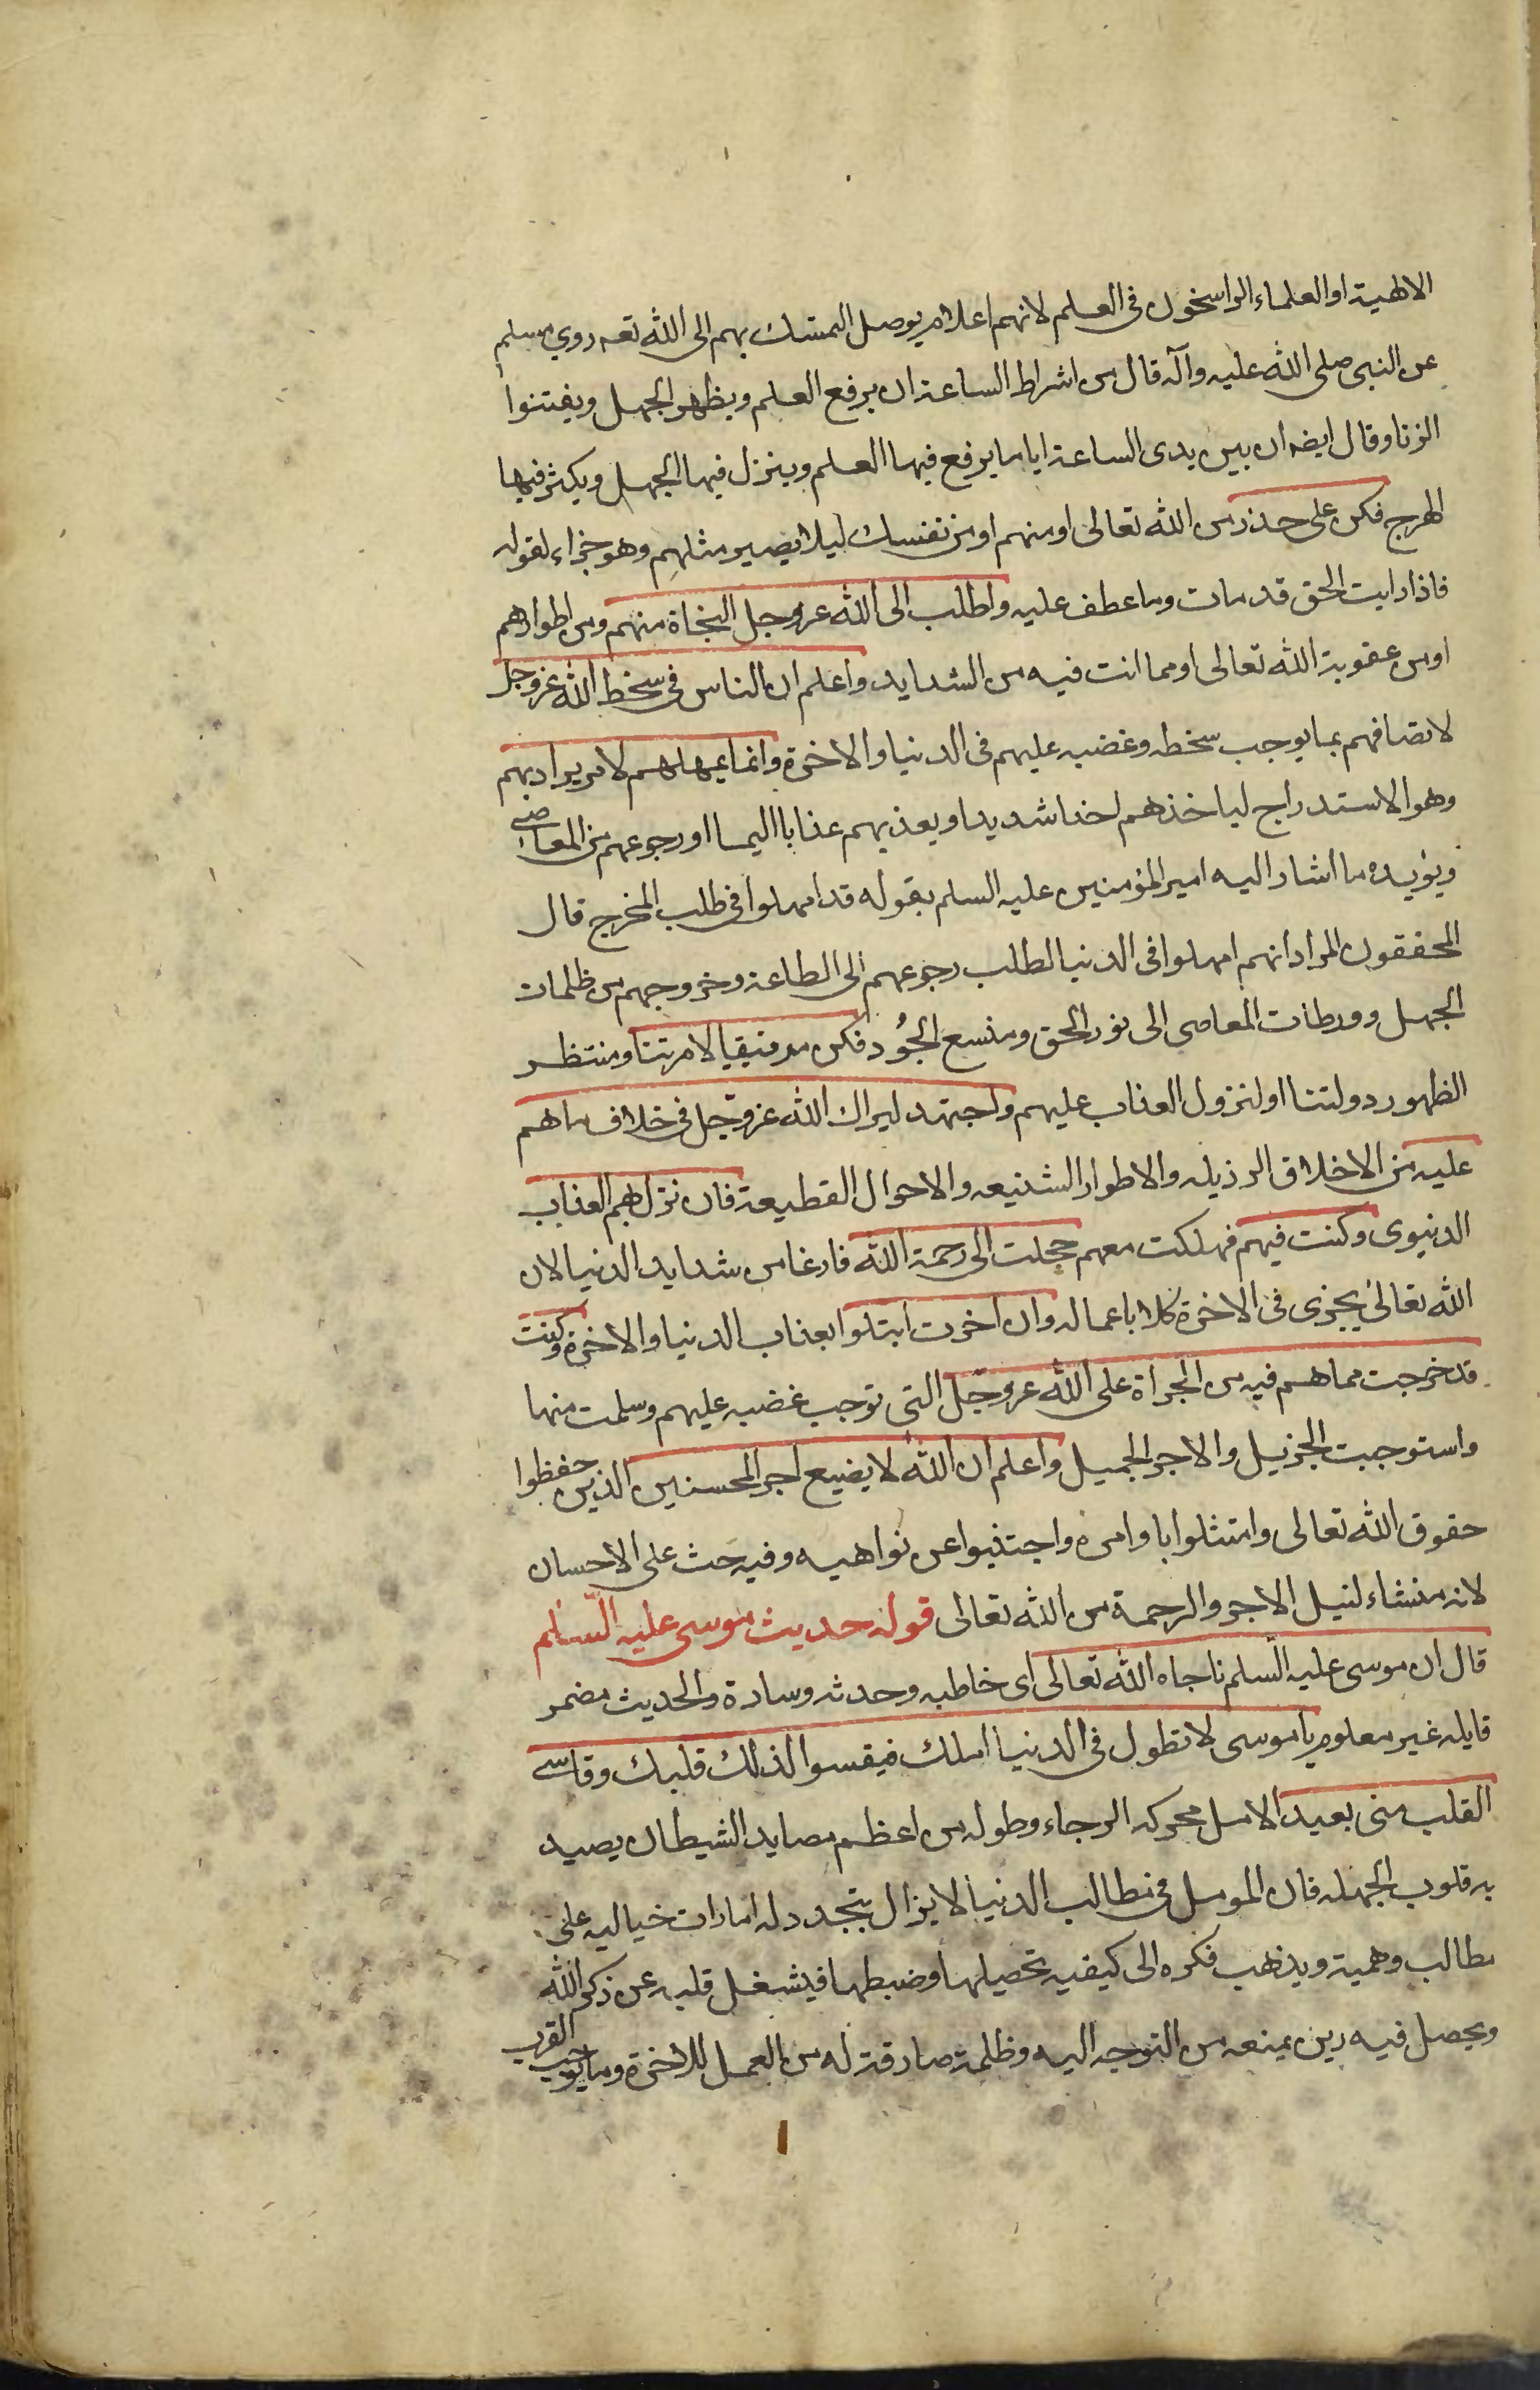 الالهية او العلماء الراسخون فى العلم لانهم اعلام يوصل التمسك بهم الى الله تعه روي مسلم
عن النبى صلى الله عليه وآله قال من اشراط الساعة ان يرفع العلم ويظهر الجهل ويفتنوا
الزنا وقال ايضه ان بين يدى الساعة اياما يرفع فيها العلم وينزل فيها الجهل ويكثر فيها
الهرج فكن على حذر من الله تعالى او منهم او من نفسك ليلا يصير مثلهم وهو جزاء لقوله
فاذا رايت الحق قد مات وما عطف عليه واطلب الى الله عز وجل النجاة منهم ومن اطوارهم
او من عقوبة الله تعالى او مما انت فيه من الشدايد واعلم ان الناس فى سخط الله عز وجل
لاتصافهم بما يوجب سخطه وغضبه عليهم فى الدنيا والاخرة وانما يمهلهم لامر يراد بهم
وهو الاستدراج لياخذهم اخذا شديدا ويعذبهم عذابا اليما او رجوعهم من المعاصى
ويؤيده ما اشار اليه امير المؤمنين عليه السلم بقوله قد امهلوا فى طلب المخرج قال
المحققون المراد انهم امهلوا فى الدنيا لطلب رجوعهم الى الطاعة وخروجهم من ظلمات
الجهل وورطات المعاصى الى نور الحق ومتسع الجُود فكن مرتقيا لامرتنا ومنتظر
الظهور دولتنا او لنزول العذاب عليهم واجتهد ليراك الله عز وجل فى خلاف ما هم
عليه من الاخلاق الرذيله والاطوار الشنيعه والاحوال القطيعة فان نزل بهم العذاب
الدنيوى وكنت فيهم فهلكت معهم عجلت الى رحمة الله فارغا من شدايد الدنيا لان
الله تعالى يجزى فى الاخرة كلا باعماله وان اخرت ابتلوا بعذاب الدنيا والاخرة وكنت
قد خرجت مما هم فيه من الجراة على الله عز وجل التى توجب غضبه عليهم وسلمت منها
واستوجبت الجزيل والاجر الجميل واعلم ان الله لا يضيع اجر المحسنين الذين حفظوا
حقوق الله تعالى وامتثلوا باوامره واجتنبوا عن نواهيه وفيه حث على الاحسان
لانه منشاء لنيل الاجر والرحمة من الله تعالى قوله حديث موسى عليه السّلم
قال ان موسى عليه السّلم ناجاه الله تعالى اى خاطبه وحدثه وسارة والحديث مضمر
قايله غير معلوم يا موسى لا تطول فى الدنيا املك فيقسوا لذلك قلبك وقاسى
القلب منى بعيد الامل محركه الرجاء وطوله من اعظم مصايد الشيطان يصيد
به قلوب الجهله فان المومل فى مطالب الدنيا لا يزال يتجدد له امارات خياليه على
مطالب وهمية ويذهب فكره الى كيفيه تحصيلها وضبطها فيشغل قلبه عن ذكر الله
ويحصل فيه رين يمنعه من التوجه اليه وظلمة صارفة له من العمل للاخرة وما يوجب القرب